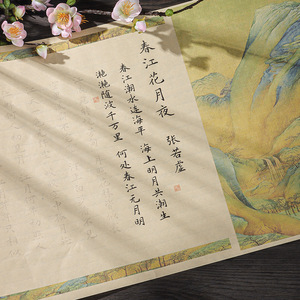 春江花月夜
张若虚
春江潮水连海平 海上明月共潮生
滟滟随波千万里 何处春江无月明